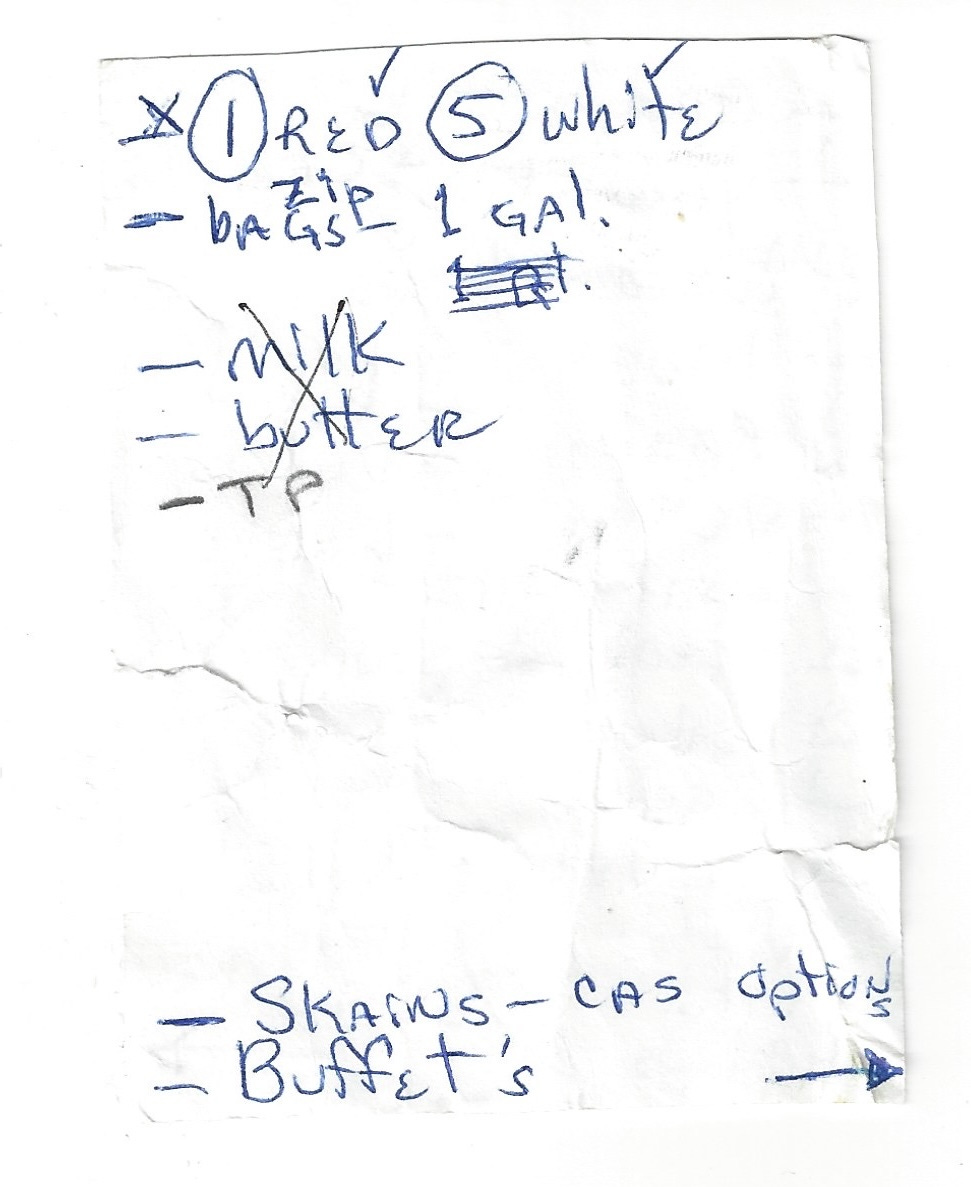 X ① RED ✓ ⑤ white ✓
- bAGS ZIP 1 GAl.
1 Qt.
- milk
- butter
- TP
- SKAINS - CAS Options
- Buffet's →